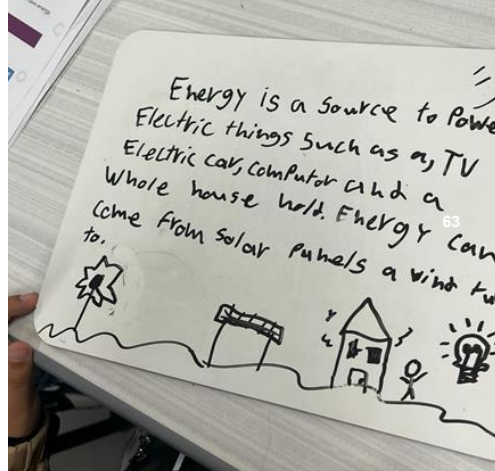 Energy is a source to Powe
Electric things such as a, TV
Electric car, computor and a
Whole house hold. Energy can
come from solar Panels a wind tu
to.
63